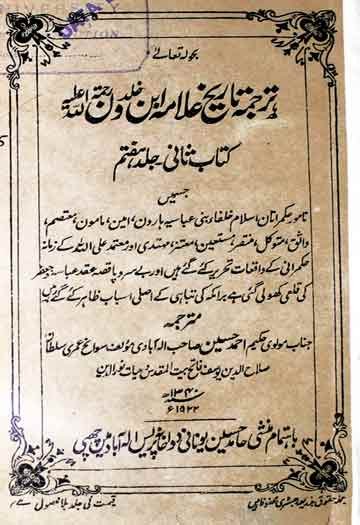 بحولہ تعالیٰ
ترجمہ تاریخ علامہ ابن خلدون رحمۃ اللہ علیہ
کتاب ثانی - جلد ہفتم
جسمیں
نامور حکمرانان، اسلام خلفاء بنی عباسیہ ہارون، امین، مامون، معتصم،
واثق، متوکل، منتصر، مستعین، معتز، مہتدی اور معتمد علی اللہ کے زمانہ
حکمرانی کے واقعات تحریر کئے گئے ہیں اور بے سروپا قصہ عقد عباسہ و جعفر
کی قلعی کھولی گئی ہے برامکہ کی تباہی کے اصلی اسباب ظاہر کئے گئے ہیں
مترجمہ
جناب مولوی حکیم احمد حسین صاحب الہ آبادی مؤلف سوانح عمری سلطان
صلاح الدین یوسف فاتح بیت المقدس و حیات نور الدین
۱۳۴۰ھ
سنہ
۱۹۲۲ء
باہتمام منشی حامد حسین یونانی دواخانہ پریس الہ آباد میں چھپی
قیمت فی جلد بلا محصول